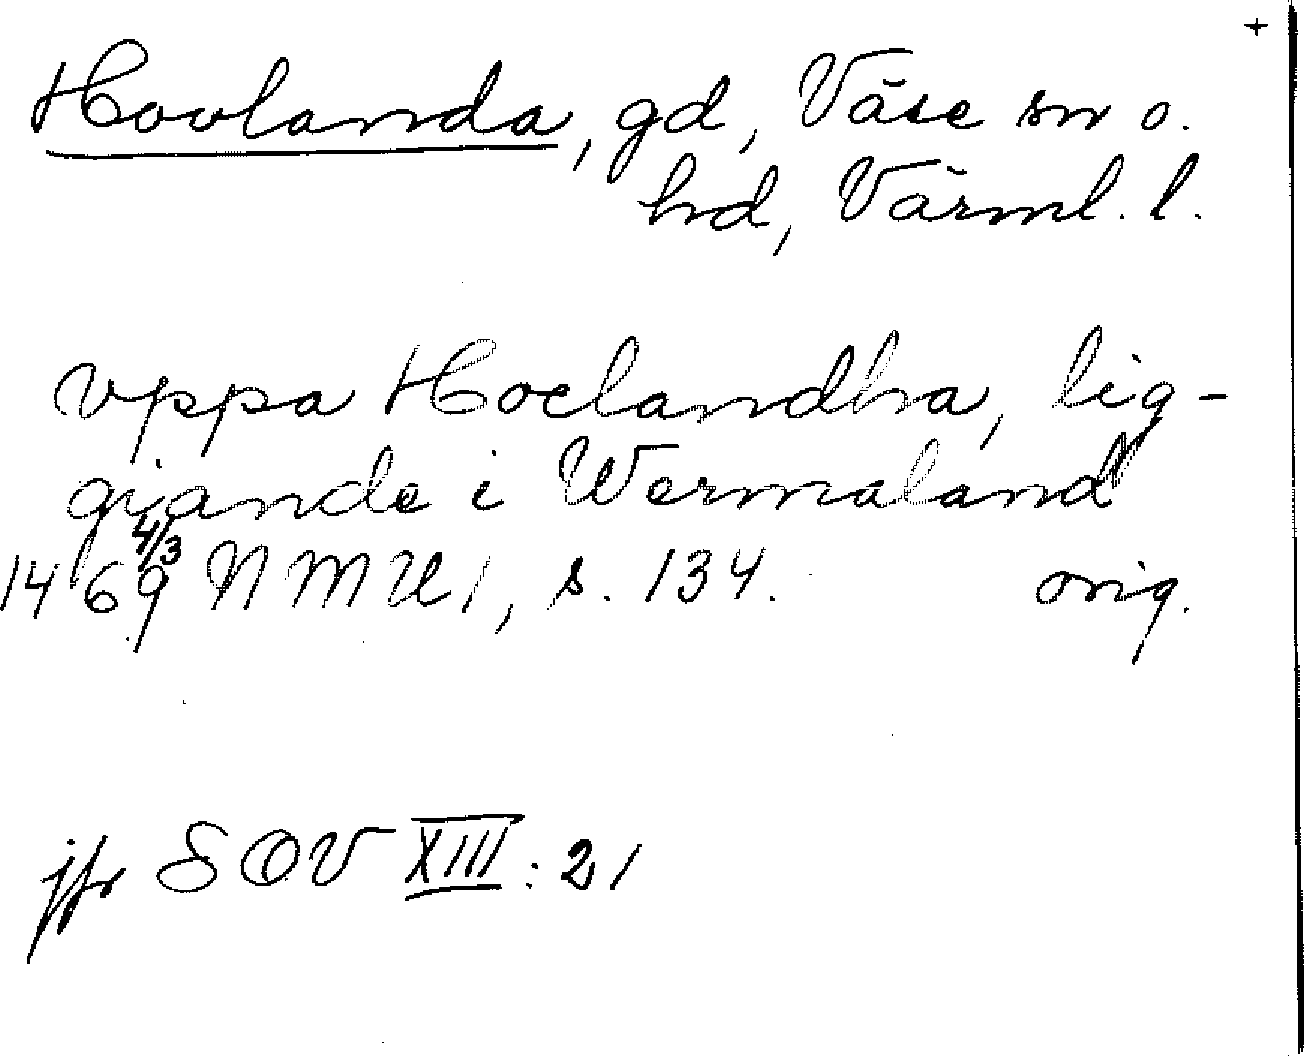 +
Hovlanda, gd, Väse sn o.
hd, Värml. l.
vppa Hoelandha, lig-
giande i Wermaland
1469 4/3 NMU 1, s. 134. orig.
jfr SOV XIII : 21